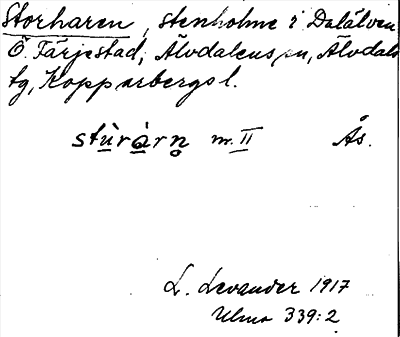 Storharen, stenholme i Dalälven
Ö. Färjestad, Älvdalens sn, Älvdals
tg, Kopparbergs l.
stùràrn m. II Ås.
L. Levander 1917
Ulma 339:2